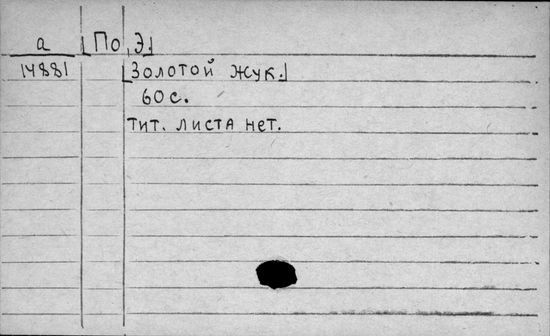 а [По, Э.]
14881 [Золотой жук.]
60 с.
Тит. листа нет.